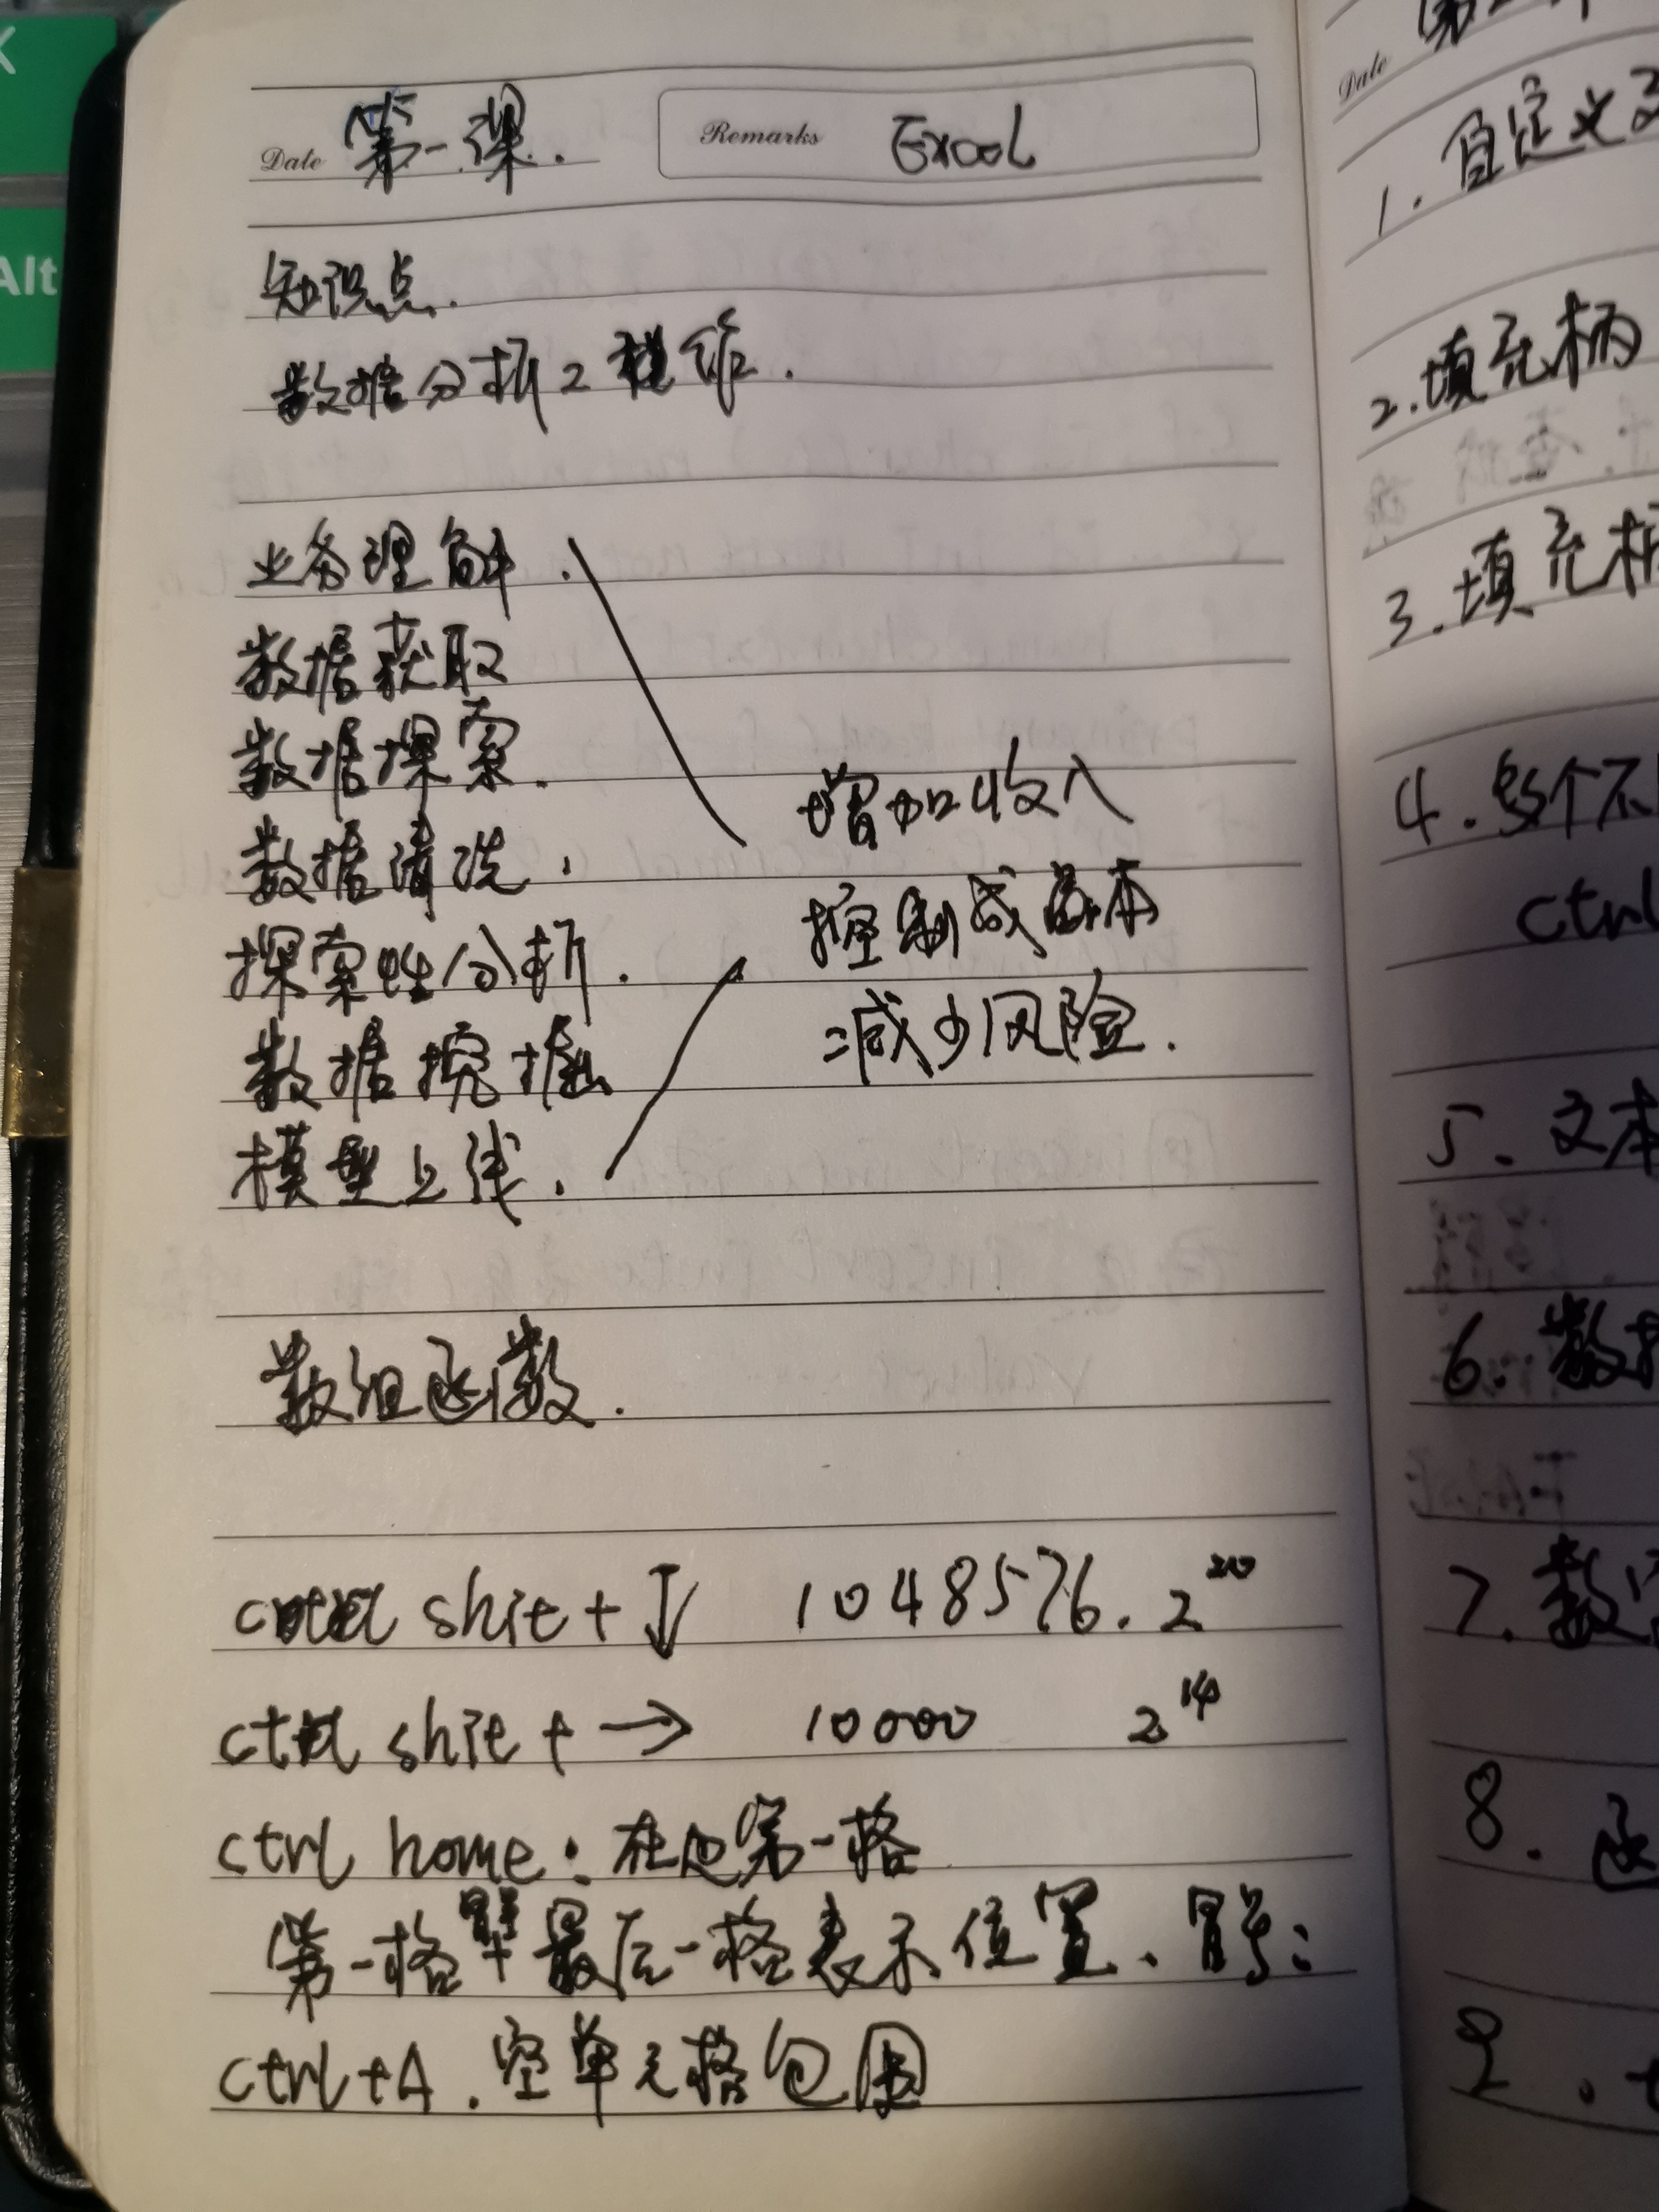 第一课.
Date
Remarks
Excel
知识点.
数据分析工程师.
业务理解.
数据获取
数据探索.
数据清洗.
探索性分析.
数据挖掘
模型上线.
增加收入
控制成本
减少风险.
数组函数.
ctrl shit + ↓ 1048576. 2²⁰
ctrl shit + → 10000 2¹⁴
ctrl home: 在第一格
第一格 最后一格表示位置、冒号:
ctrl+A. 空单元格包围
Date
1. 自定义
2. 填充柄
3. 填充柄
4. 多个不
ctrl
5. 文本
6. 数据
7. 数
8. 函
9.
Alt